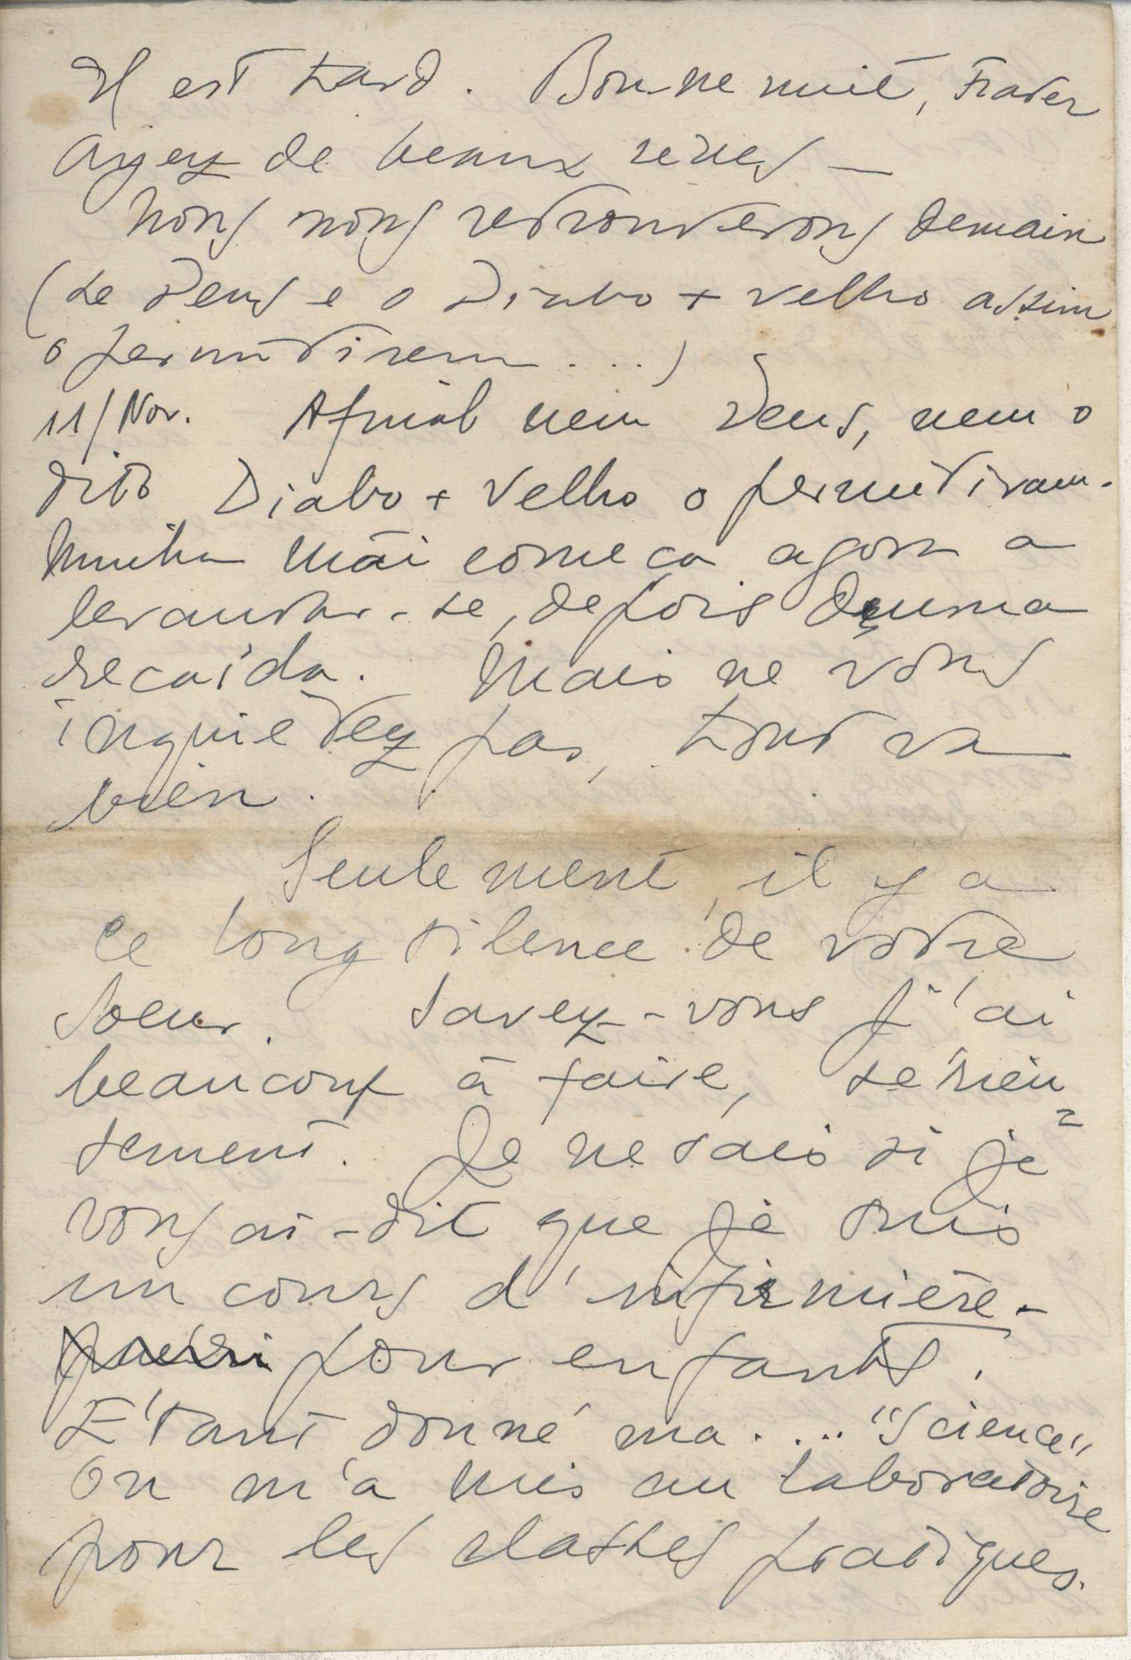 Il est tard. Bonne nuit, Frater
Ayez de beaux rêves —
Nous nous retrouverons demain
(se Deus e o Diabo + velho assim
o permitirem....)
11/Nov. Afinal nem Deus, nem o
dito Diabo + Velho o permitiram.
Minha Mãi começa agora a
levantar-se, depois duma
recaída. Mais ne vous
inquiètez pas, tout va
bien.
Seulement, il y a
ce long silence de votre
Soeur. Savez-vous j'ai
beaucoup à faire, sérieu=
sement. Je ne sais si je
vous ai-dit que je suis
un cours d'infirmière-
pour enfants.
Étant donné ma.... "Science"
on m'a mis au laboratoire
pour les classes pratiques.